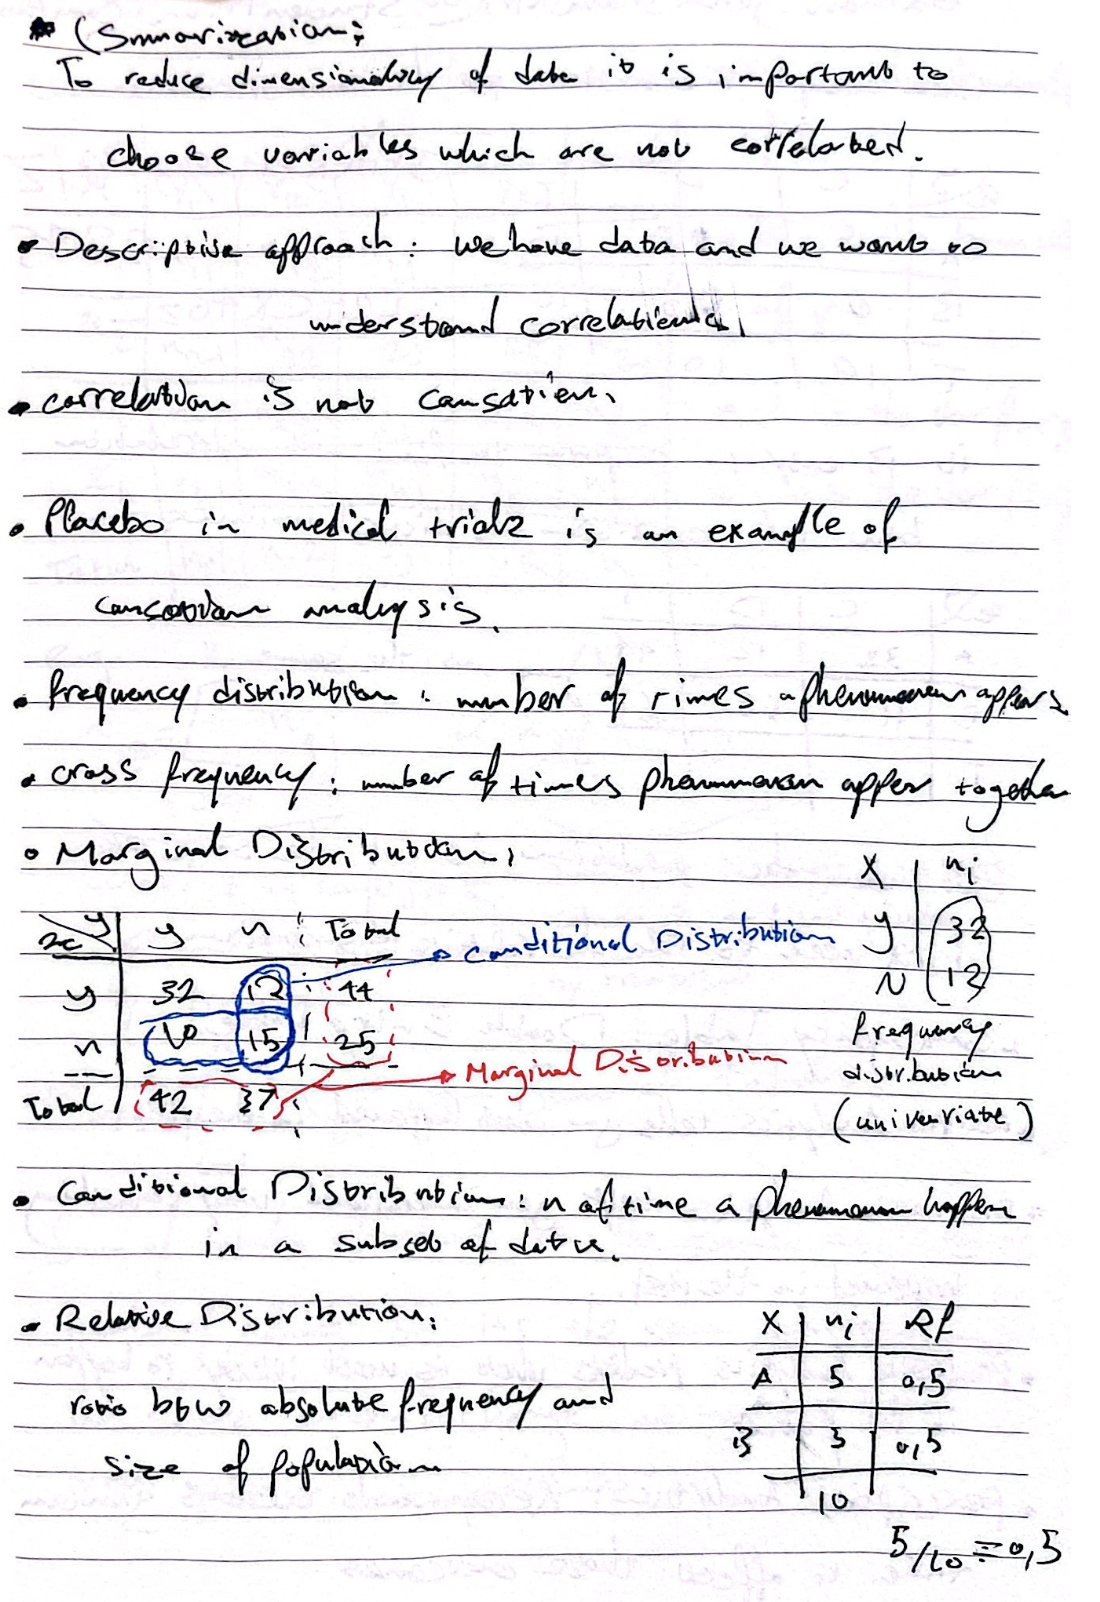 (Summarization:
To reduce dimensionality of data it is important to
choose variables which are not correlated.
• Descriptive approach: we have data and we want to
understand correlation
• correlation is not causation.
• Placebo in medical trials is an example of
causation analysis.
• frequency distribution: number of times a phenomenon appears
• cross frequency: number of times phenomenon appear together
• Marginal Distribution:
X | ni
y | 32
N | 12
frequency
distribution
(univariate)
x \ y | y | n | Total
y | 32 | 12 | 44
n | 10 | 15 | 25
Total | 42 | 37
Conditional Distribution
Marginal Distribution
• Conditional Distribution: n of time a phenomenon happen
in a subset of data.
• Relative Distribution:
ratio btw absolute frequency and
size of population
X | ni | Rf
A | 5 | 0,5
B | 5 | 0,5
10
5/10 = 0,5